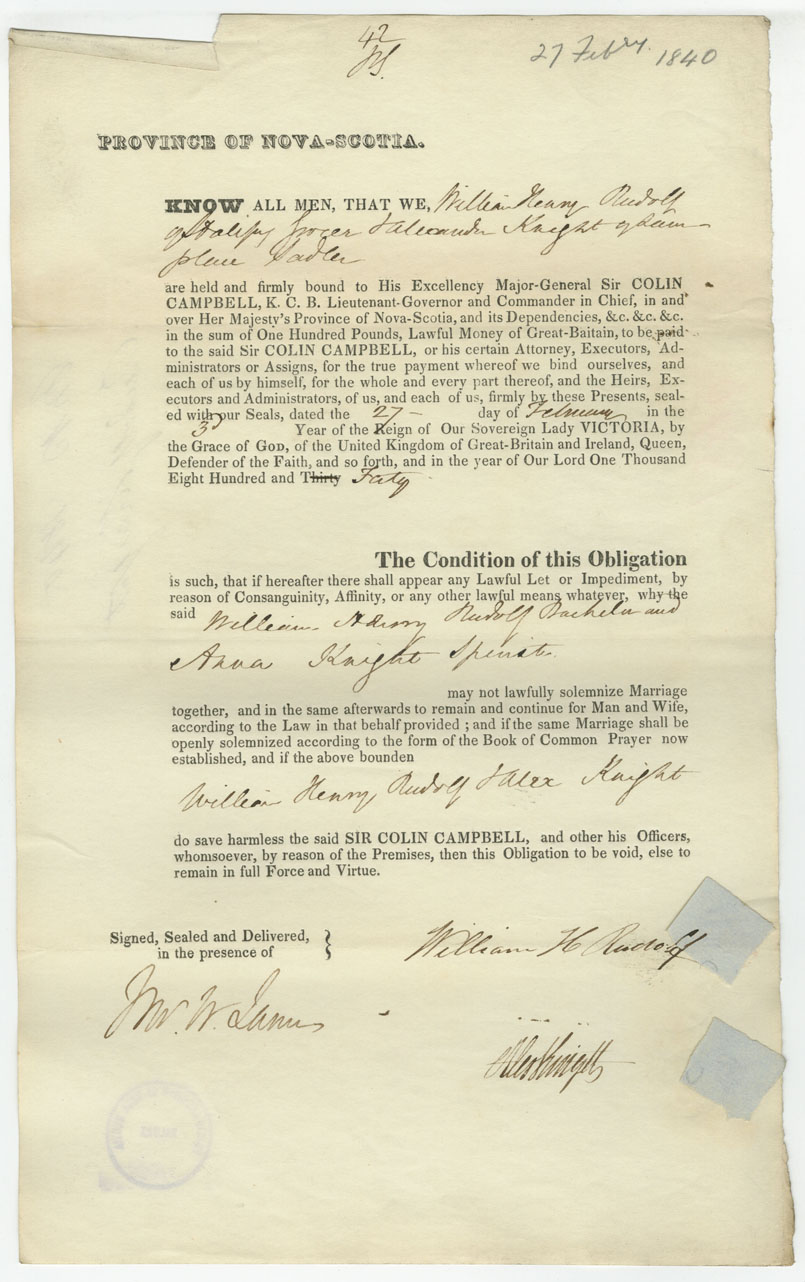 42
27 Feby. 1840
PROVINCE OF NOVA-SCOTIA.
KNOW ALL MEN, THAT WE, William Henry Rudolf
of Halifax Grocer & Alexander Knight of Same
place Sadler
are held and firmly bound to His Excellency Major-General Sir COLIN
CAMPBELL, K. C. B. Lieutenant-Governor and Commander in Chief, in and
over Her Majesty's Province of Nova-Scotia, and its Dependencies, &c. &c. &c.
in the sum of One Hundred Pounds, Lawful Money of Great-Baitain, to be paid
to the said Sir COLIN CAMPBELL, or his certain Attorney, Executors, Ad-
ministrators or Assigns, for the true payment whereof we bind ourselves, and
each of us by himself, for the whole and every part thereof, and the Heirs, Ex-
ecutors and Administrators, of us, and each of us, firmly by these Presents, seal-
ed with our Seals, dated the 27 – day of February in the
3d Year of the Reign of Our Sovereign Lady VICTORIA, by
the Grace of GOD, of the United Kingdom of Great-Britain and Ireland, Queen,
Defender of the Faith, and so forth, and in the year of Our Lord One Thousand
Eight Hundred and Thirty Forty
The Condition of this Obligation
is such, that if hereafter there shall appear any Lawful Let or Impediment, by
reason of Consanguinity, Affinity, or any other lawful means whatever, why the
said William Henry Rudolf Bachelor and
Anna Knight Spinster
may not lawfully solemnize Marriage
together, and in the same afterwards to remain and continue for Man and Wife,
according to the Law in that behalf provided ; and if the same Marriage shall be
openly solemnized according to the form of the Book of Common Prayer now
established, and if the above bounden
William Henry Rudolf & Alex Knight
do save harmless the said SIR COLIN CAMPBELL, and other his Officers,
whomsoever, by reason of the Premises, then this Obligation to be void, else to
remain in full Force and Virtue.
Signed, Sealed and Delivered,
in the presence of
William H Rudolf
W. James
Alex Knight